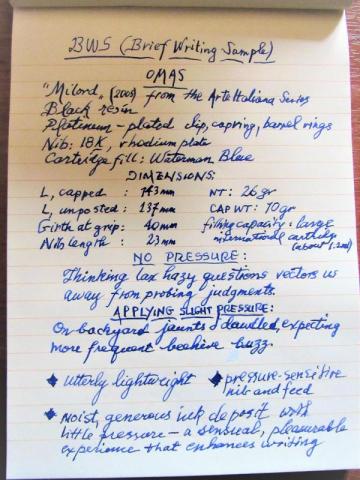 BWS (Brief Writing Sample)
OMAS
"Milord" (2008) from the Arte Italiana Series
Black resin
Platinum-plated clip, capring, barrel rings
Nib: 18K, rhodium plate
Cartridge fill: Waterman Blue
DIMENSIONS:
L, capped : 143mm
L, unposted : 137mm
Girth at grip: 40mm
Nib length : 23mm
WT: 26 gr
CAP WT: 10 gr
filling capacity: large
international cartridge
(about 1.2ml)
NO PRESSURE:
Thinking lax hazy questions vectors us
away from probing judgments.
APPLYING SLIGHT PRESSURE:
On backyard jaunts I dawdled, expecting
more frequent beehive buzz.
Utterly lightweight
pressure-sensitive
nib and feed
Moist, generous ink deposit with
little pressure – a sensual, pleasurable
experience that enhances writing